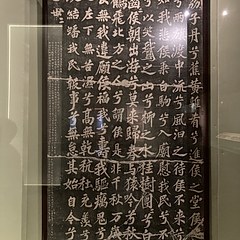 子丹兮蕉黃雜肴兮進侯之堂侯
兮兩旗中流兮風汩之待侯不來兮
知我悲侯乘白駒兮入廟慰我民兮
兮以笑鵝之山兮柳之水桂樹團兮白
侯朝出游兮莫來歸春與猿吟兮秋
鶴飛北方之人兮謂侯是非千秋萬歲
侯無我違願侯福我兮壽我驅厲鬼兮
左下無苦濕兮高無乾秔稌充羨兮
結蟠我民報事兮無怠其始自今兮
世世